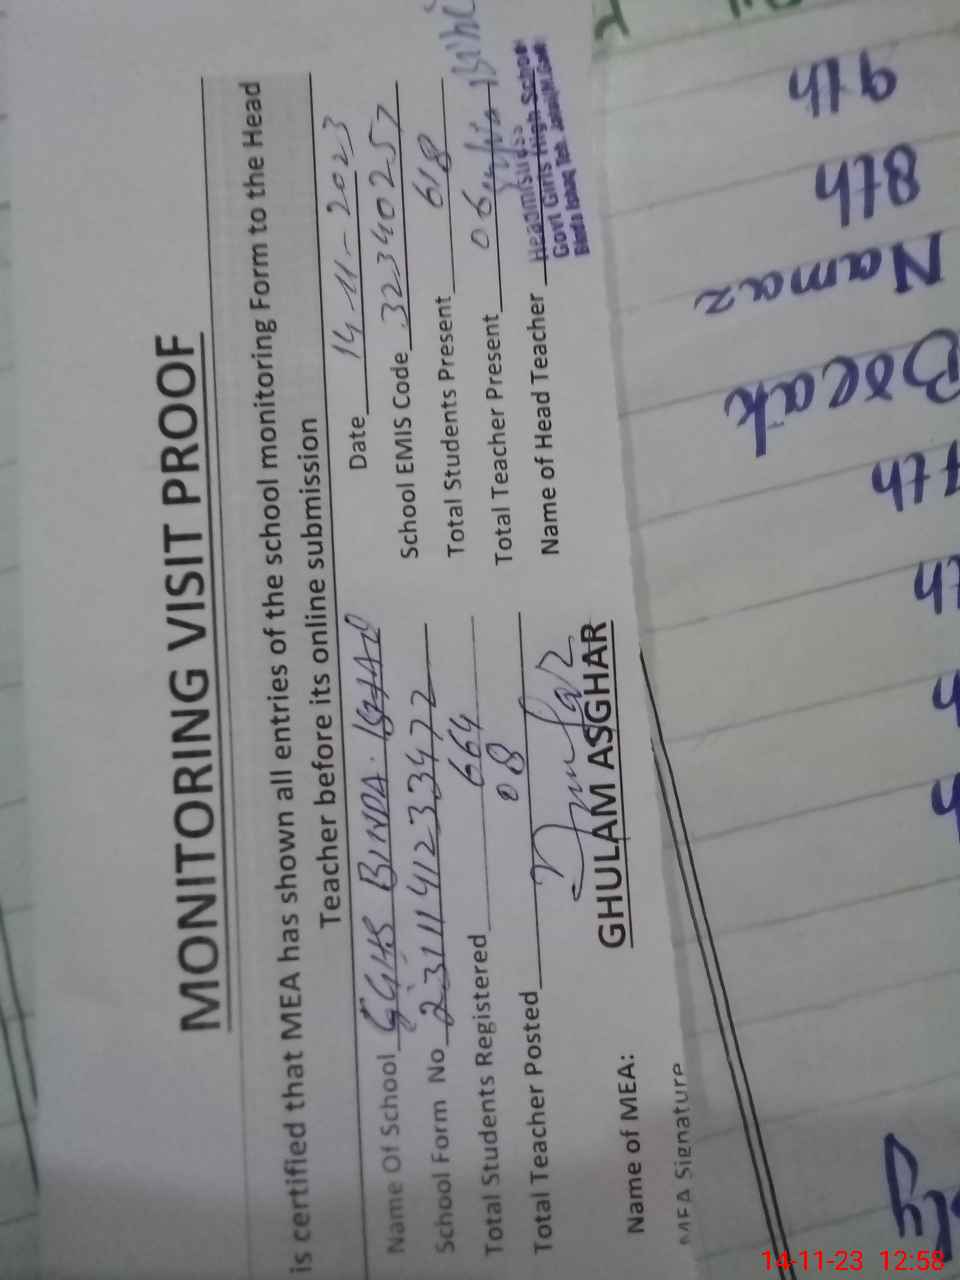 MONITORING VISIT PROOF
is certified that MEA has shown all entries of the school monitoring Form to the Head
Teacher before its online submission
Date 14-11-2023
Name Of School GGHS BINDA. ISHAQ
School EMIS Code 32340257
School Form No 2311141233472
Total Students Present 618
Total Students Registered 664
Total Teacher Present 06
Total Teacher Posted 08
Name of Head Teacher
Headmistress
Govt Girls High School
Binda Ishaq Teh. Jatoi
Name of MEA: GHULAM ASGHAR
MEA Signature
9th
8th
Namaz
Break
7th
th
h
h
14-11-23 12:58